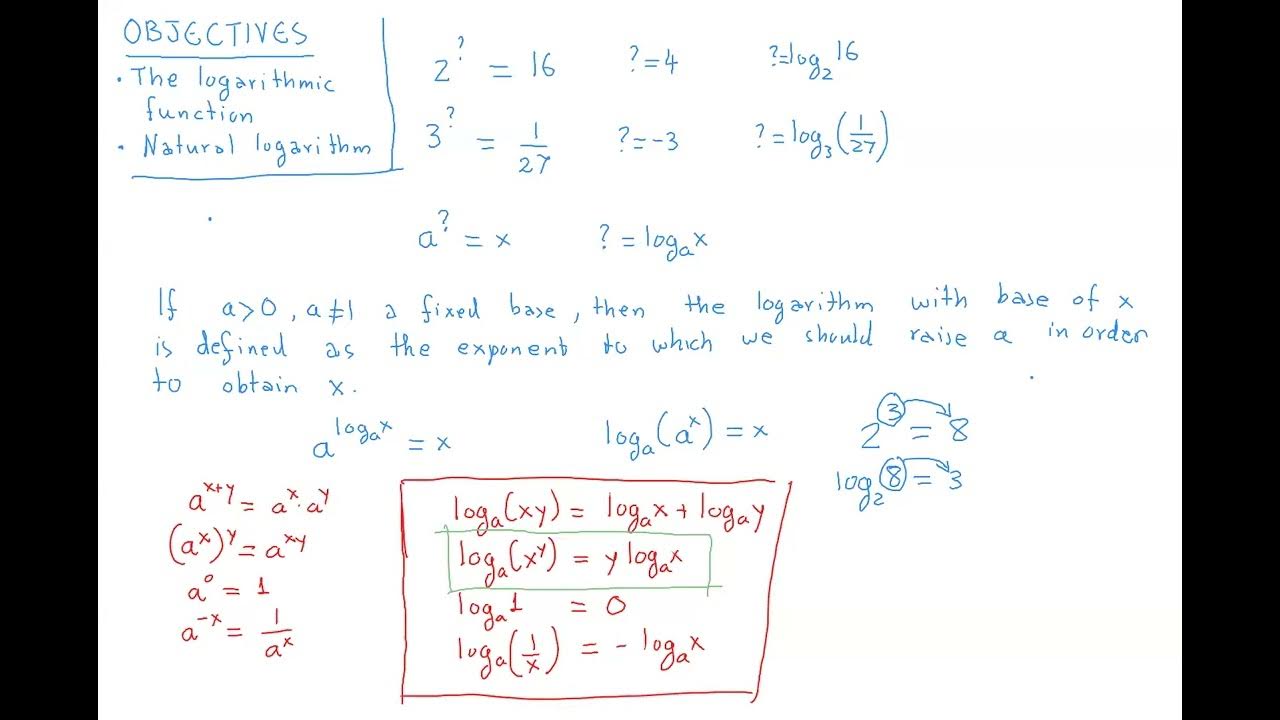 OBJECTIVES
• The logarithmic
function
• Natural logarithm
2^? = 16 ?=4 ?=log₂16
3^? = 1/27 ?=-3 ?=log₃(1/27)
a^? = x ?=logₐx
If a>0, a≠1 a fixed base, then the logarithm with base of x
is defined as the exponent to which we should raise a in order
to obtain x.
a^(logₐx) = x logₐ(a^x) = x 2^3 = 8
log₂8 = 3
a^(x+y) = a^x · a^y
(a^x)^y = a^(xy)
a^0 = 1
a^(-x) = 1/a^x
logₐ(xy) = logₐx + logₐy
logₐ(x^y) = y logₐx
logₐ1 = 0
logₐ(1/x) = - logₐx